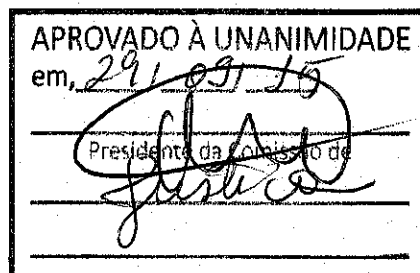 APROVADO À UNANIMIDADE
em, 29/09/15
Presidente da Comissão de
Justiça